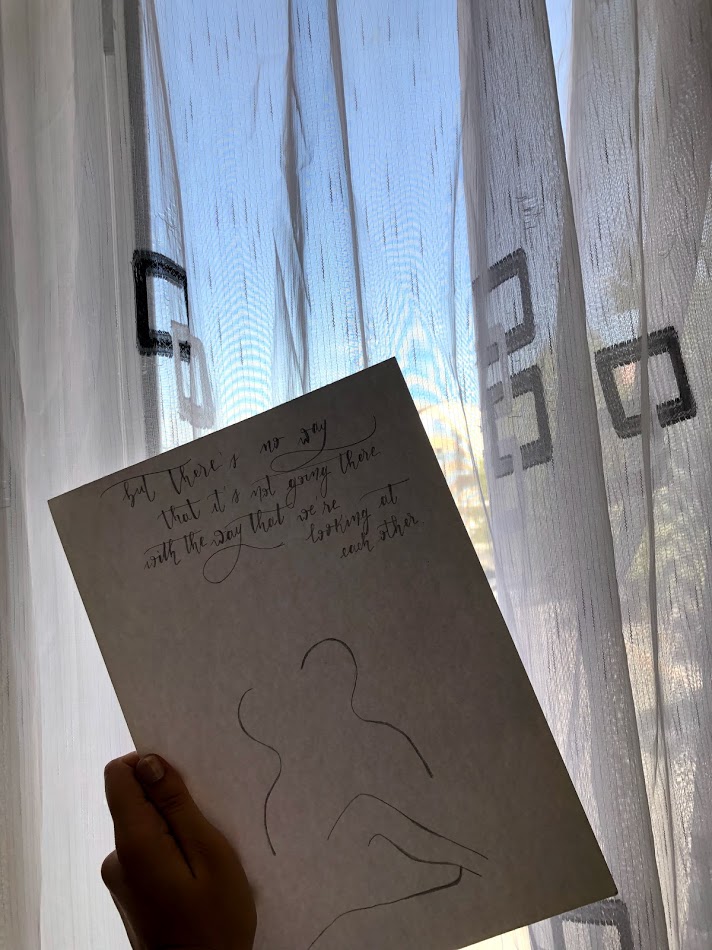 but there's no way
that it's not going there
with the way that we're looking at
each other